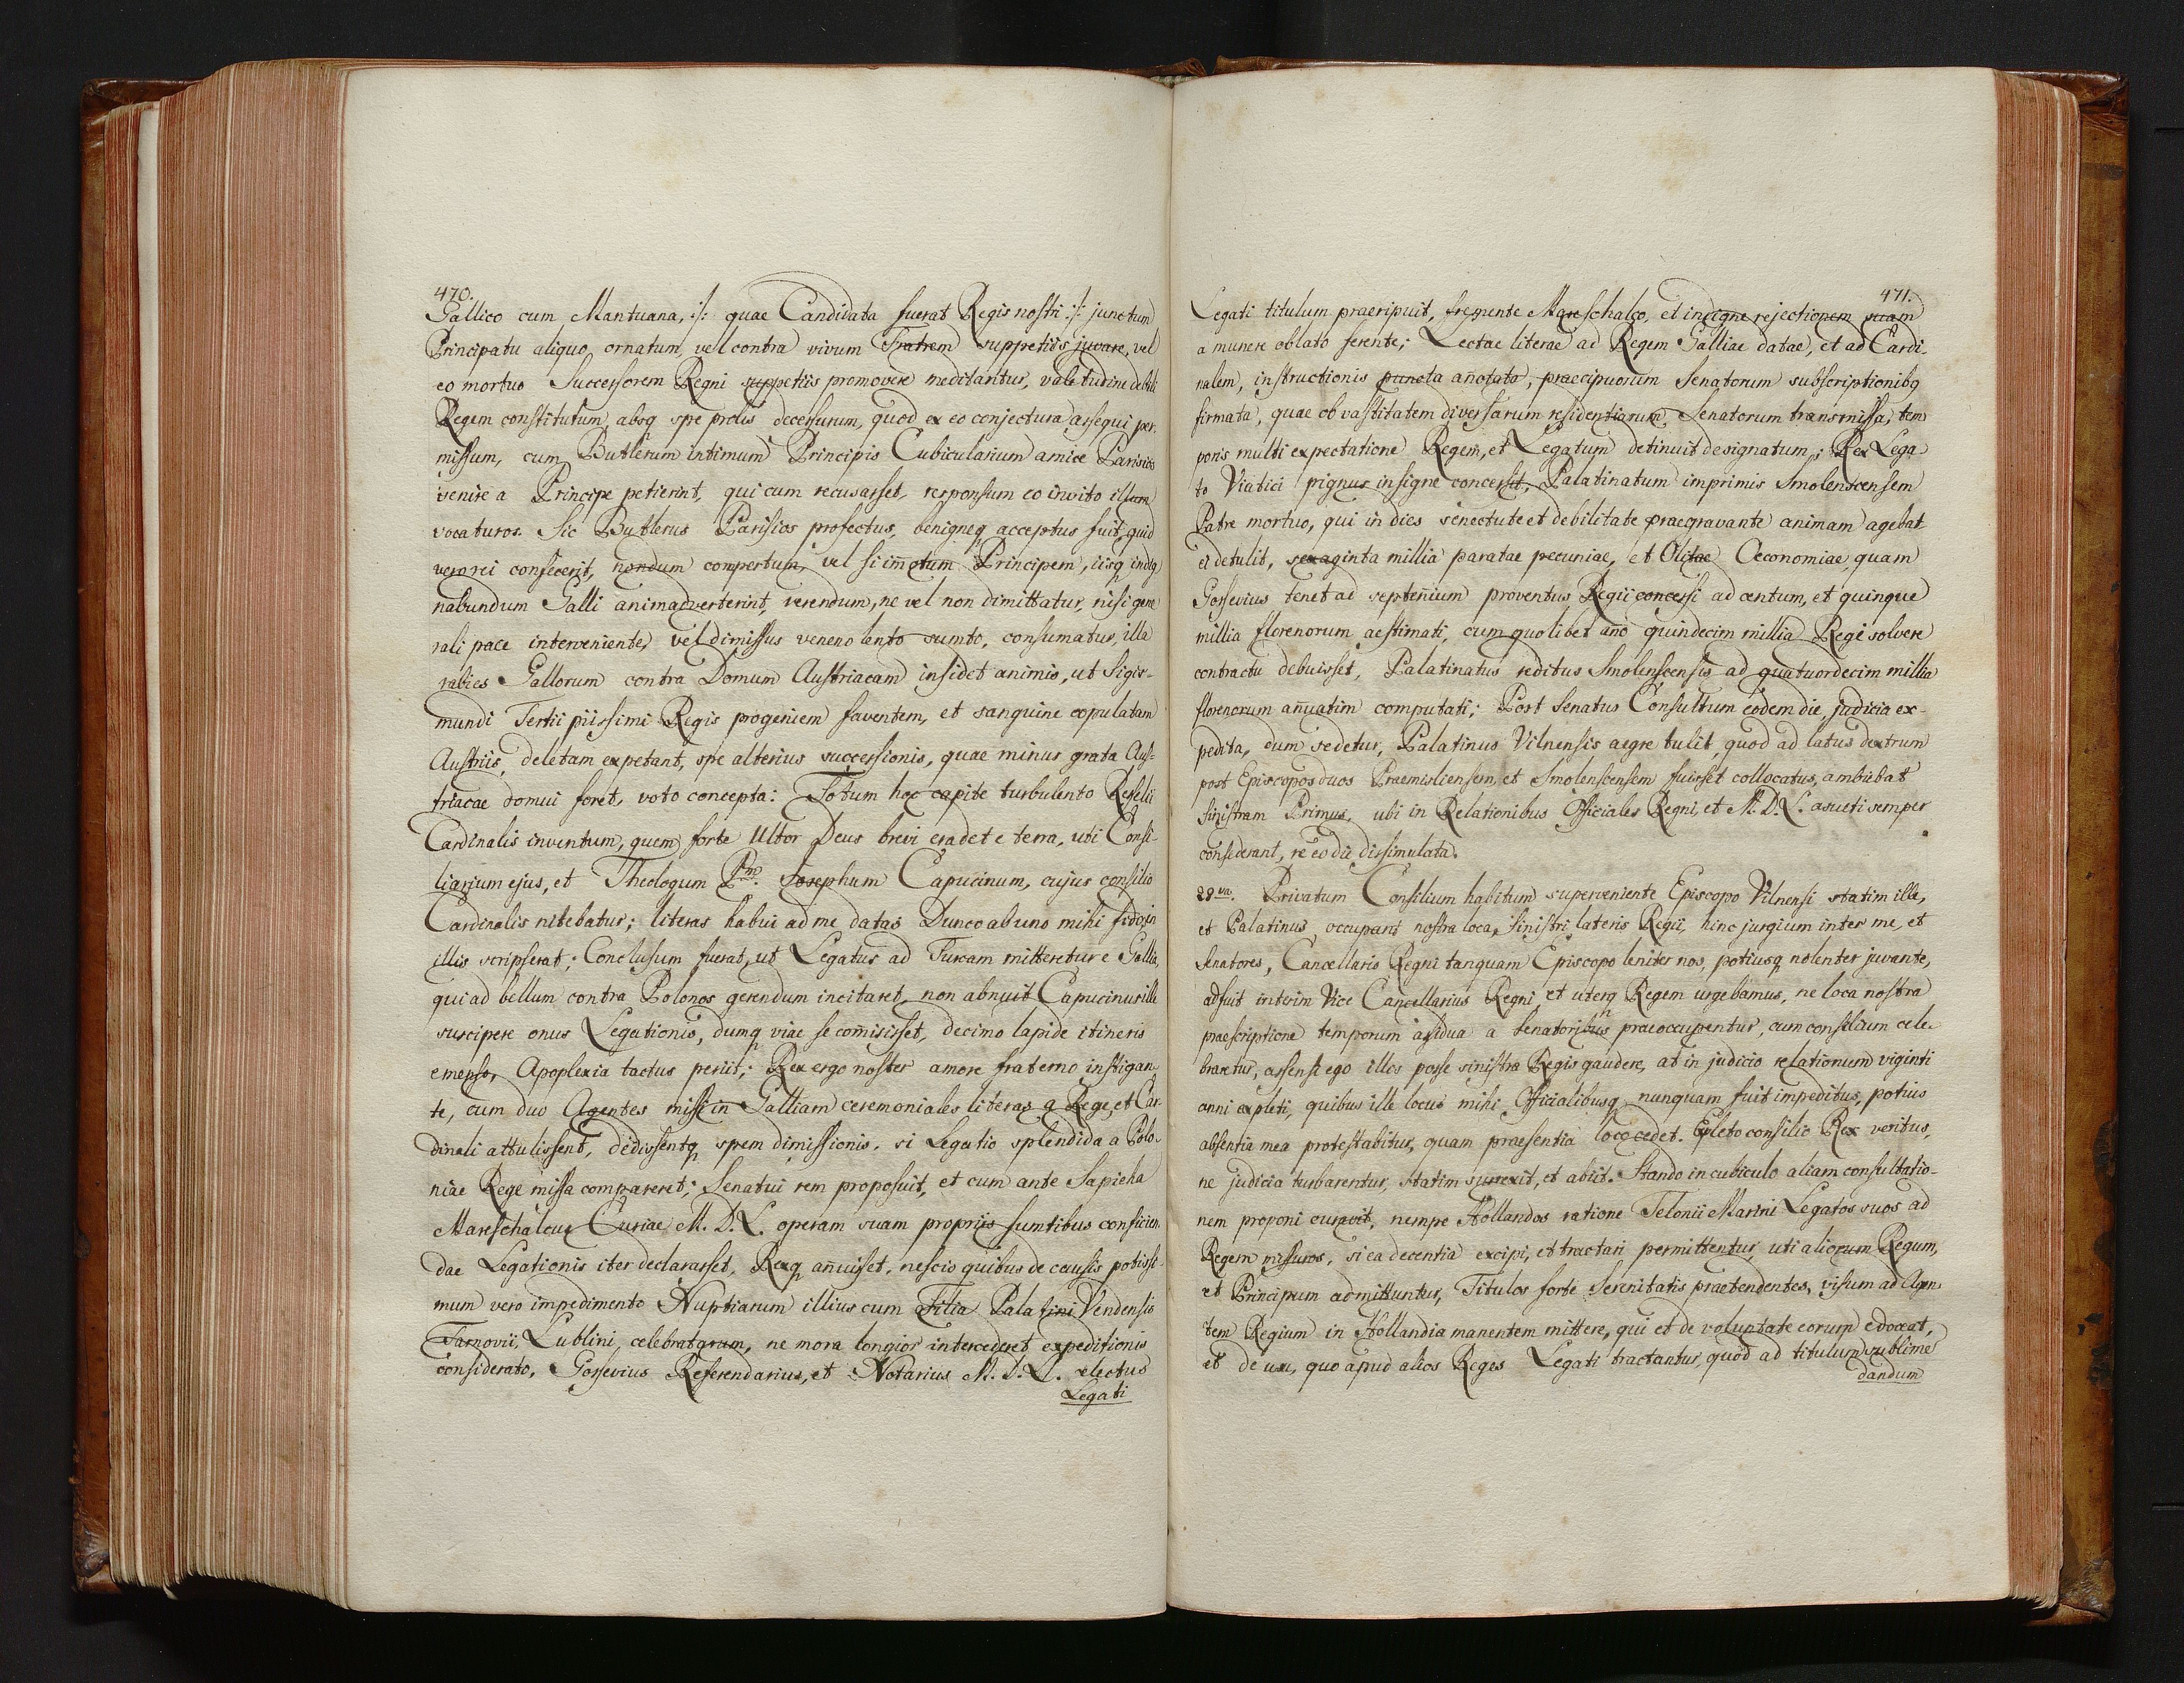 470.
Gallico cum Mantuana, :/: quae Candidata fuerat Regis nostri :/: junctum
Principatu aliquo ornatum, vel contra vivum Fratrem suppetiis juvare, vel
eo mortuo Successorem Regni suppetiis promovere meditantur, valetudine debili
Regem constitutum, absq spe prolis decessurum, quod ex eo conjectura assequi per-
missum, cum Butlerum intimum Principis Cubicularium amice Parisios
venire a Principe petierint, qui cum recusasset, responsum eo invito illum
vocaturos. Sic Butlerus Parisios profectus, benigneq acceptus fuit, quid
vero rei confecerit, nondum compertum, vel si im̄otum Principem, iisq indig
nabundum Galli animadverterint, verendum, ne vel non dimittatur, nisi gene
rali pace interveniente, vel dimissus veneno lento sumto, consumatur, illa
rabies Gallorum contra Domum Austriacam insidet animis, ut Sigis-
mundi Tertii piissimi Regis progeniem faventem, et sanguine copulatam
Austriis, deletam expetant, spe alterius successionis, quae minus grata Aus-
triacae domui foret, voto concepta: Totum hoc capite turbulento Reseli
Cardinalis inventum, quem forte Ultor Deus brevi eradet e terra, uti Consi-
liarium ejus, et Theologum P.m Josephum Capucinum, cujus consilio
Cardinalis nitebatur; literas habui ad me datas Dunco ab uno mihi fido, in
illis scripserat; Conclusum fuerat, ut Legatus ad Turcam mitteretur e Gallia,
qui ad bellum contra Polonos gerendum incitaret, non abnuit Capucinus ille
suscipere onus Legationis, dumq viae se com̄isisset, decimo lapide itineris
emenso, Apoplexia tactus periit; Rex ergo noster amore fraterno instigan-
te, cum duo Agentes missi in Galliam ceremoniales literas a Rege, et Car-
dinali attulissent, dedissentq spem dimissionis, si Legatio splendida a Polo-
niae Rege missa compareret; Senatui rem proposuit, et cum ante Sapieha
Mareschalcus Curiae M. D. L. operam suam propriis sumtibus conficien
dae Legationis iter declarasset, Rexq an̄uisset, nescio quibus de causis potissi-
mum vero impedimento Nuptiarum illius cum Filia Palatini Vendensis
Tarnovii, Lublini celebratarum, ne mora longior intercederet expeditionis
considerato, Gosievius Referendarius, et Notarius M. D. L. electus
Legati
471.
Legati titulum praeripuit, fremente Mareschalco, et indigne rejectionem suam
a munere oblato ferente; Lectae literae ad Regem Galliae datae, et ad Cardi-
nalem, instructionis puncta an̄otata, praecipuorum Senatorum subscriptionibq
firmata, quae ob vastitatem diversarum residentiarum, Senatorum transmissa, tem
poris multi expectatione Regem, et Legatum detinuit designatum; Rex Lega-
to Viatici pignus insigne concessit, Palatinatum imprimis Smolenscensem
Patre mortuo, qui in dies senectute et debilitate praegravante animam agebat
ei detulit, sexaginta millia paratae pecuniae, et Olitae Oeconomiae, quam
Gosievius tenet ad septen̄ium proventus Regii concessi ad centum, et quinque
millia florenorum aestimati, cum quolibet an̄o quindecim millia Regi solvere
contractu debuisset, Palatinatus reditus Smolenscensis ad quatuordecim millia
florenorum an̄uatim computati; Post Senatus Consultum eodem die judicia ex-
pedita, dum sedetur, Palatinus Vilnensis aegre tulit, quod ad latus dextrum
post Episcopos duos Praemisliensem, et Smolenscensem fuisset collocatus, ambiebat
sinistram Primus, ubi in Relationibus Officiales Regni, et M. D. L. asueti semper
considerant, re eo die dissimulata.
28va. Privatum Consilium habitum superveniente Episcopo Vilnensi statim ille,
et Palatinus occuparit nostra loca, sinistri lateris Regii, hinc jurgium inter me, et
Senatores, Cancellario Regni tanquam Episcopo leniter nos, potiusq nolenter juvante,
adfuit interim Vice Cancellarius Regni, et uterq Regem urgebamus, ne loca nostra
praescriptione temporum asidua a Senatoribus praeoccupentur, cum consilium cele-
braretur, assensi ego illos posse sinistra Regis gaudere, at in judicio relationum viginti
anni expleti, quibus ille locus mihi Officialibusq nunquam fuit impeditus, potius
absentia mea protestabitur, quam praesentia loco cedet. Expleto consilio Rex veritus,
ne judicia turbarentur, statim surrexit, et abiit. Stando in cubiculo aliam consultatio-
nem proponi curavit, nempe Hollandos ratione Telonii Marini Legatos suos ad
Regem missuros, si ea decentia excipi, et tractari permittentur, uti aliorum Regum,
et Principum admittuntur, Titulos forte Serenitatis praetendentes, visum ad Agen-
tem Regium in Hollandia manentem mittere, qui et de voluptate eorum edoceat,
et de usu, quo apud alios Reges Legati tractantur, quod ad titulum sublime
dandum